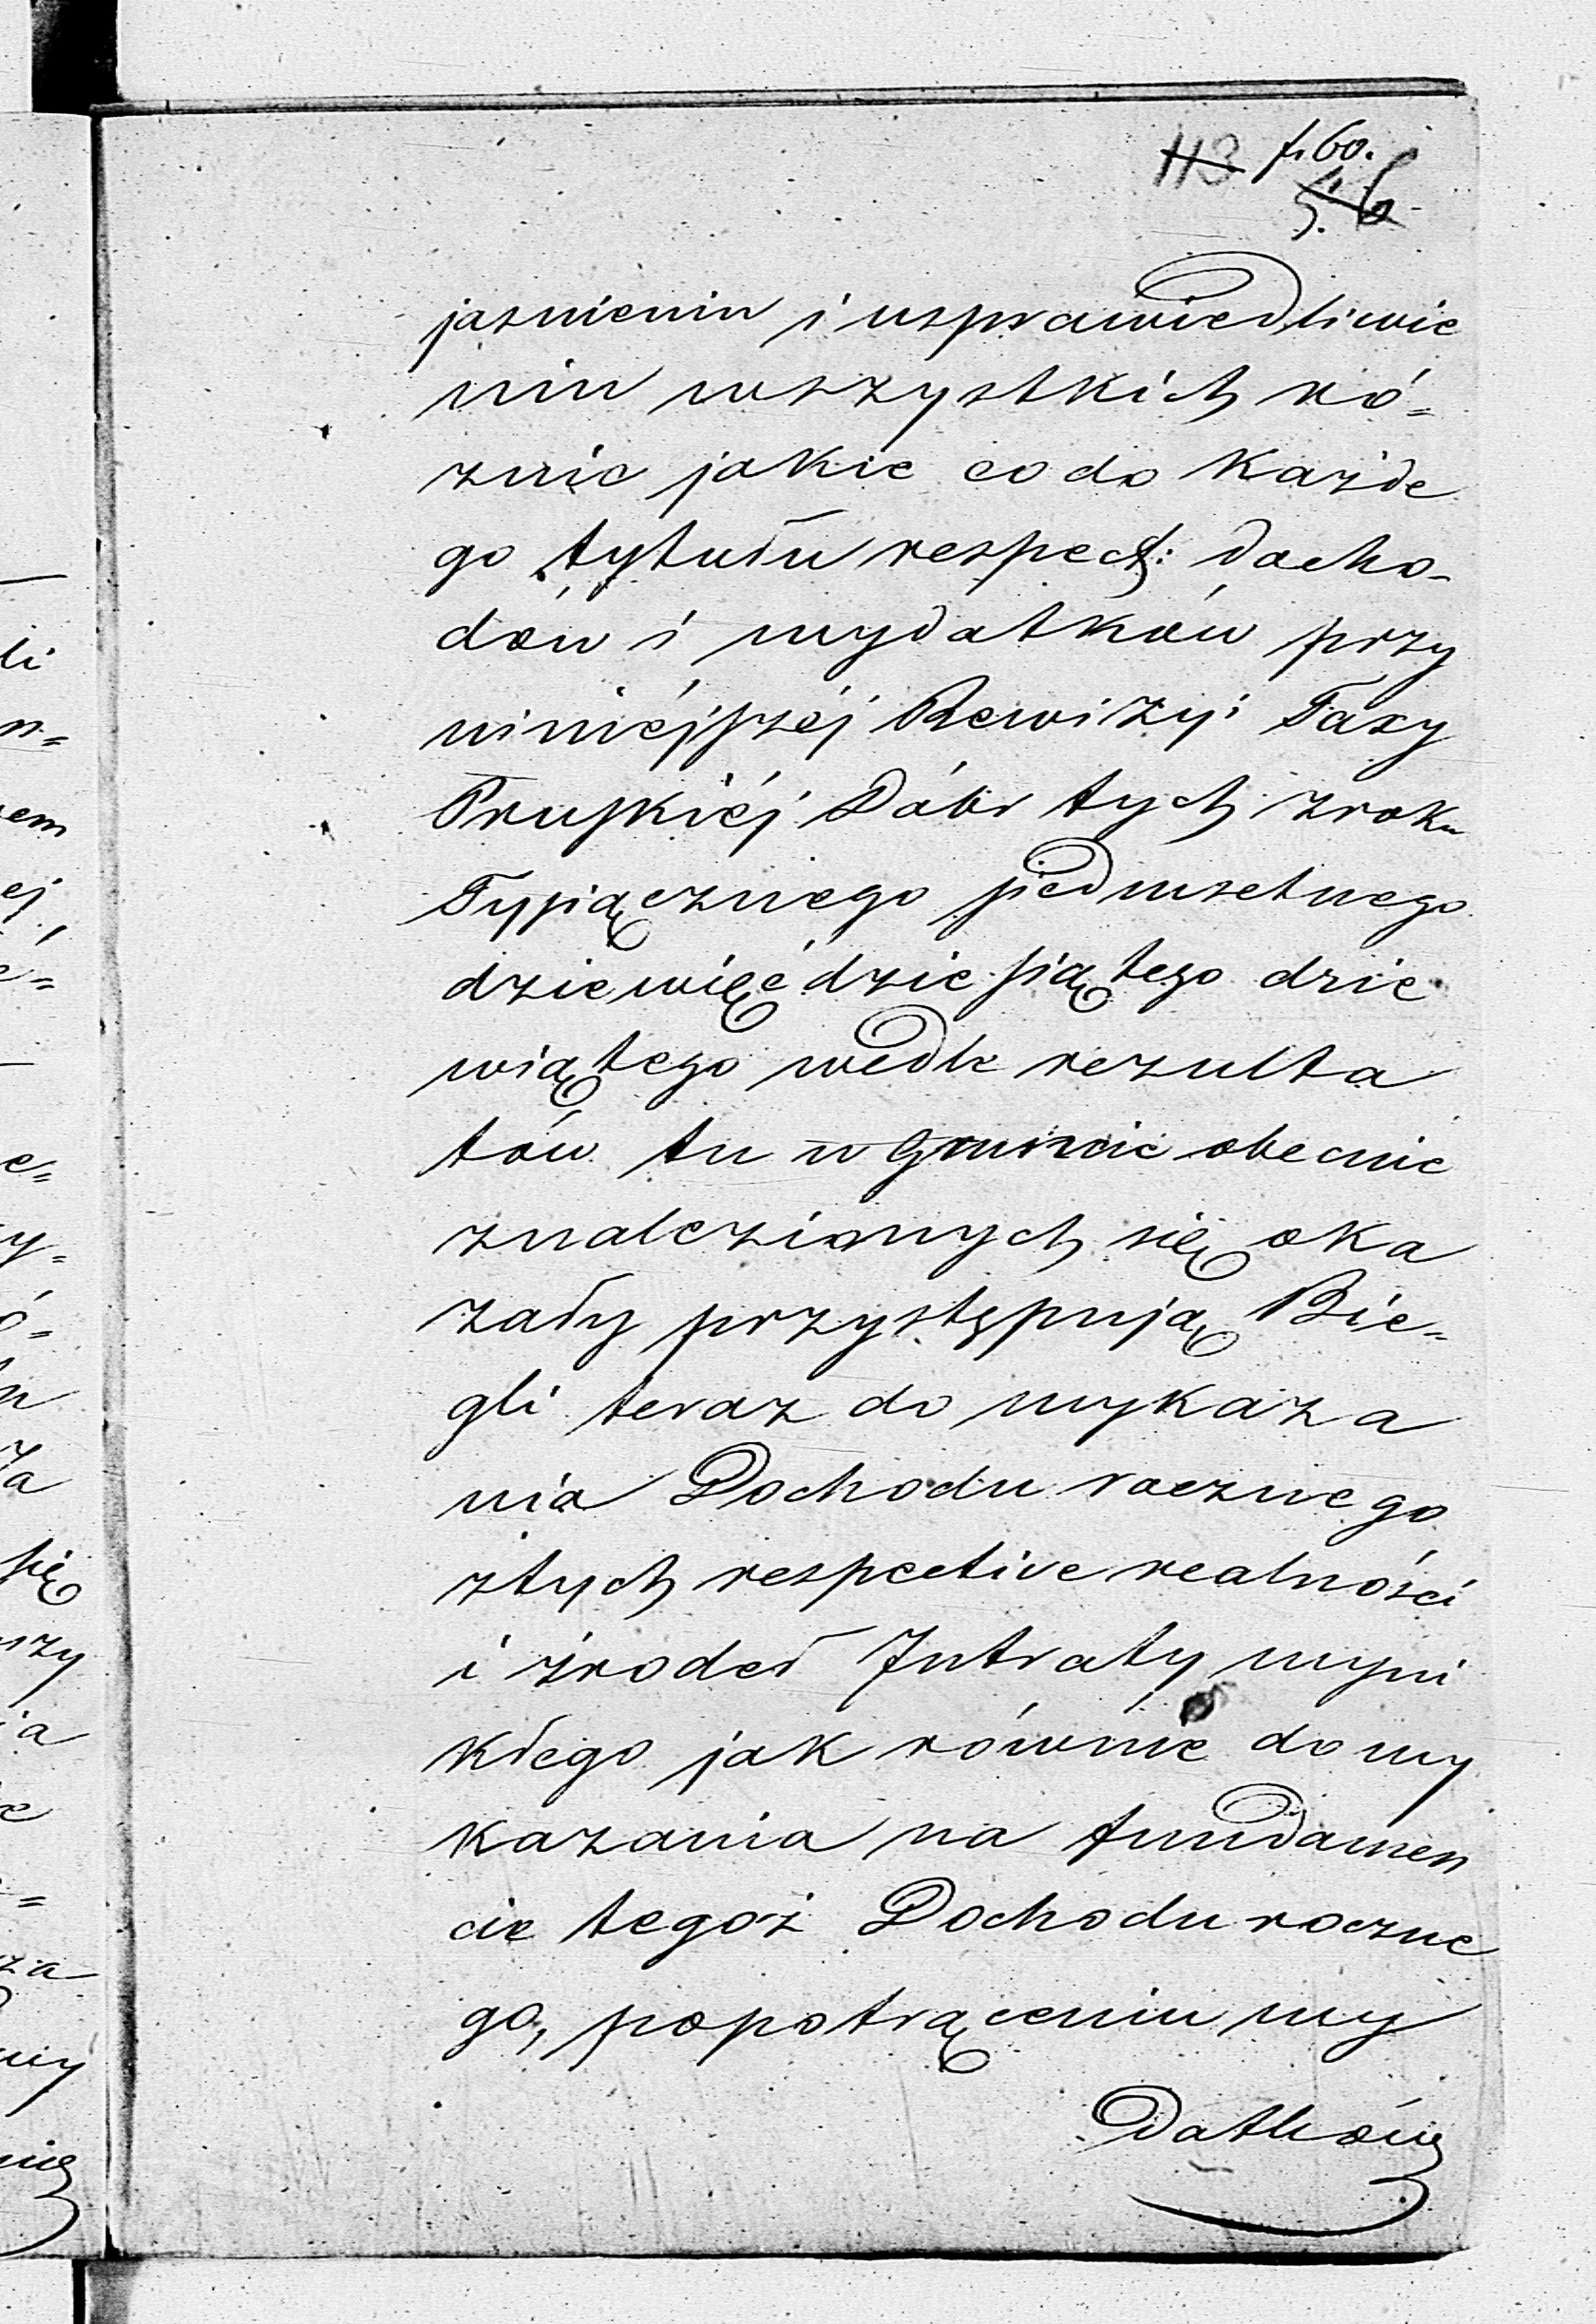 113 f. 60.
jasnieniu i usprawiedliwie
niu wszystkich ró=
znic jakie co do każde
go tytułu respect: docho-
dów i wydatków przy
niniejszéj Rewizyi Taxy
Pruskiéj Dóbr tych z roku
Tysiącznego siedmsetnego
dziewięćdziesiątego dzie
wiątego wedle rezulta
tów tu w Gruncie obecnie
znalezionych się oka
zały przystępują Bie=
gli teraz do wykaza
nia Dochodu rocznego
z tych respective realności
i źrodeł Intraty wyni
kłego jak równie do wy
kazania na fundamen
cie tegoż Dochodu roczne
go, po potrąceniu wy
datków
li
n=
em
ej
e=
y=
ó=
za
się
szy
ia